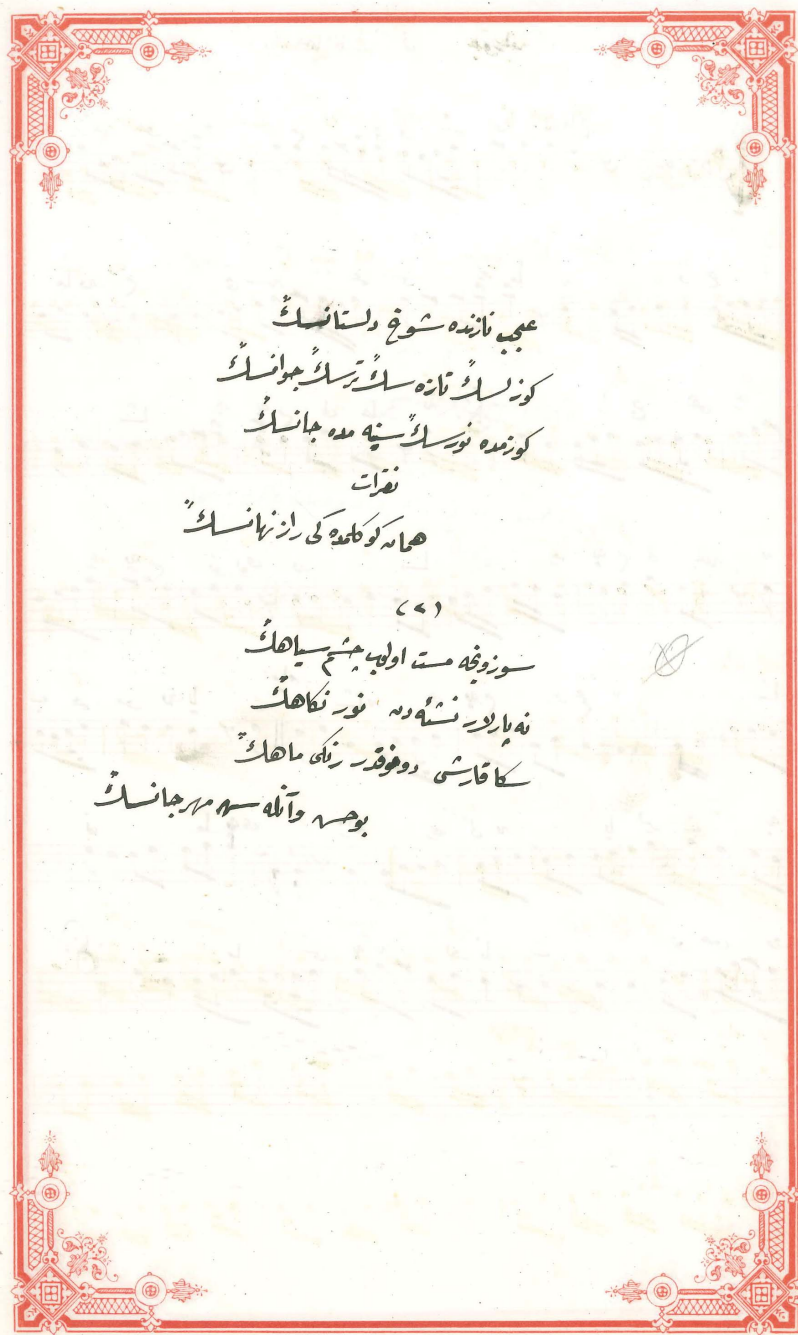 عجب نازنده شوخ دلستانسڭ
كوزلسڭ تازه سڭ ترسڭ جوانسڭ
كوزمده نورسڭ سينه مده جانسڭ
نقرات
همان كوكلمده كى راز نهانسڭ
(٢)
سوزولنجه مست اولوب چشم سياهڭ
نه پارلار نشئه دن نور نكاهڭ
سكا قارشى دونوقدر رنكى ماهڭ
بو حسن وآنله سن مهر جانسڭ